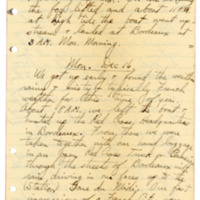 the fog lifted and about 11 PM
at high tide the boat went up
stream & landed at Bordeaux at
3 AM. Mon. Morning.
Mon. Dec. 16.
We got up early & found the weather
rainy & misty typically French
weather for this time of year.
About 9 A.M. we left the boat &
hunted up the Red Cross headquarters
in Bordeaux. From there we were
taken together with our hand baggage
in an open Red Cross truck
through the streets of Bordeaux
rain driving in our faces up to the
(Station) Gare du Midi. Our first